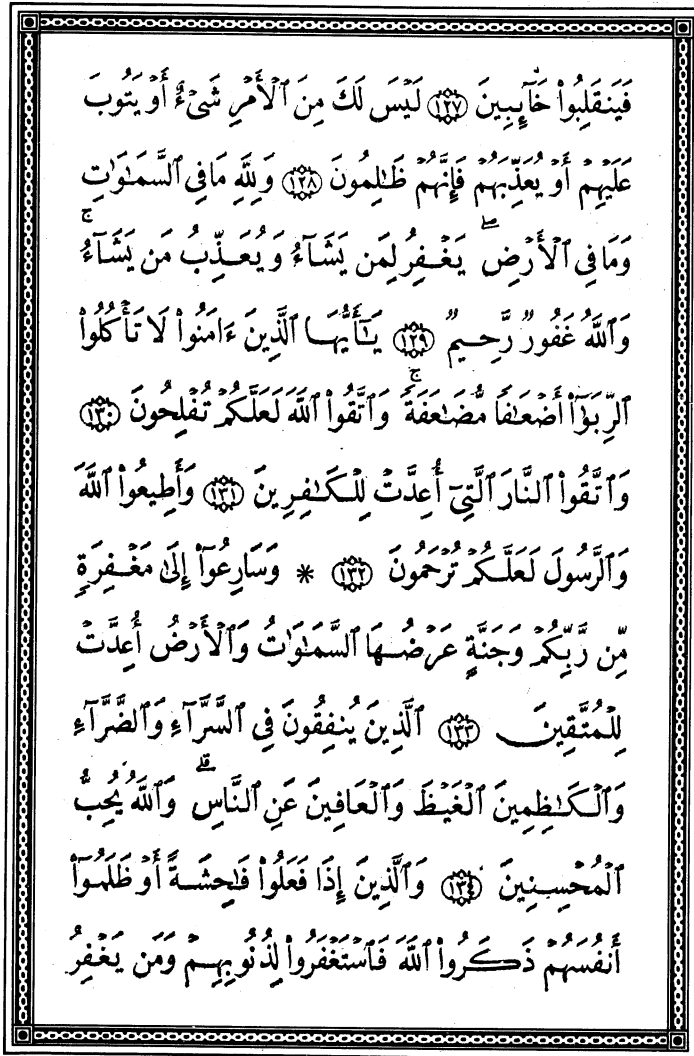 فَيَنقَلِبُوا۟ خَآئِبِينَ ١٢٧ لَيْسَ لَكَ مِنَ ٱلْأَمْرِ شَىْءٌ أَوْ يَتُوبَ
عَلَيْهِمْ أَوْ يُعَذِّبَهُمْ فَإِنَّهُمْ ظَـٰلِمُونَ ١٢٨ وَلِلَّهِ مَا فِى ٱلسَّمَـٰوَٰتِ
وَمَا فِى ٱلْأَرْضِ ۖ يَغْفِرُ لِمَن يَشَآءُ وَيُعَذِّبُ مَن يَشَآءُ ۚ
وَٱللَّهُ غَفُورٌ رَّحِيمٌ ١٢٩ يَـٰٓأَيُّهَا ٱلَّذِينَ ءَامَنُوا۟ لَا تَأْكُلُوا۟
ٱلرِّبَوٰٓا۟ أَضْعَـٰفًا مُّضَـٰعَفَةً ۚ وَٱتَّقُوا۟ ٱللَّهَ لَعَلَّكُمْ تُفْلِحُونَ ١٣٠
وَٱتَّقُوا۟ ٱلنَّارَ ٱلَّتِىٓ أُعِدَّتْ لِلْكَـٰفِرِينَ ١٣١ وَأَطِيعُوا۟ ٱللَّهَ
وَٱلرَّسُولَ لَعَلَّكُمْ تُرْحَمُونَ ١٣٢ * وَسَارِعُوٓا۟ إِلَىٰ مَغْفِرَةٍ
مِّن رَّبِّكُمْ وَجَنَّةٍ عَرْضُهَا ٱلسَّمَـٰوَٰتُ وَٱلْأَرْضُ أُعِدَّتْ
لِلْمُتَّقِينَ ١٣٣ ٱلَّذِينَ يُنفِقُونَ فِى ٱلسَّرَّآءِ وَٱلضَّرَّآءِ
وَٱلْكَـٰظِمِينَ ٱلْغَيْظَ وَٱلْعَافِينَ عَنِ ٱلنَّاسِ ۗ وَٱللَّهُ يُحِبُّ
ٱلْمُحْسِنِينَ ١٣٤ وَٱلَّذِينَ إِذَا فَعَلُوا۟ فَـٰحِشَةً أَوْ ظَلَمُوٓا۟
أَنفُسَهُمْ ذَكَرُوا۟ ٱللَّهَ فَٱسْتَغْفَرُوا۟ لِذُنُوبِهِمْ وَمَن يَغْفِرُ